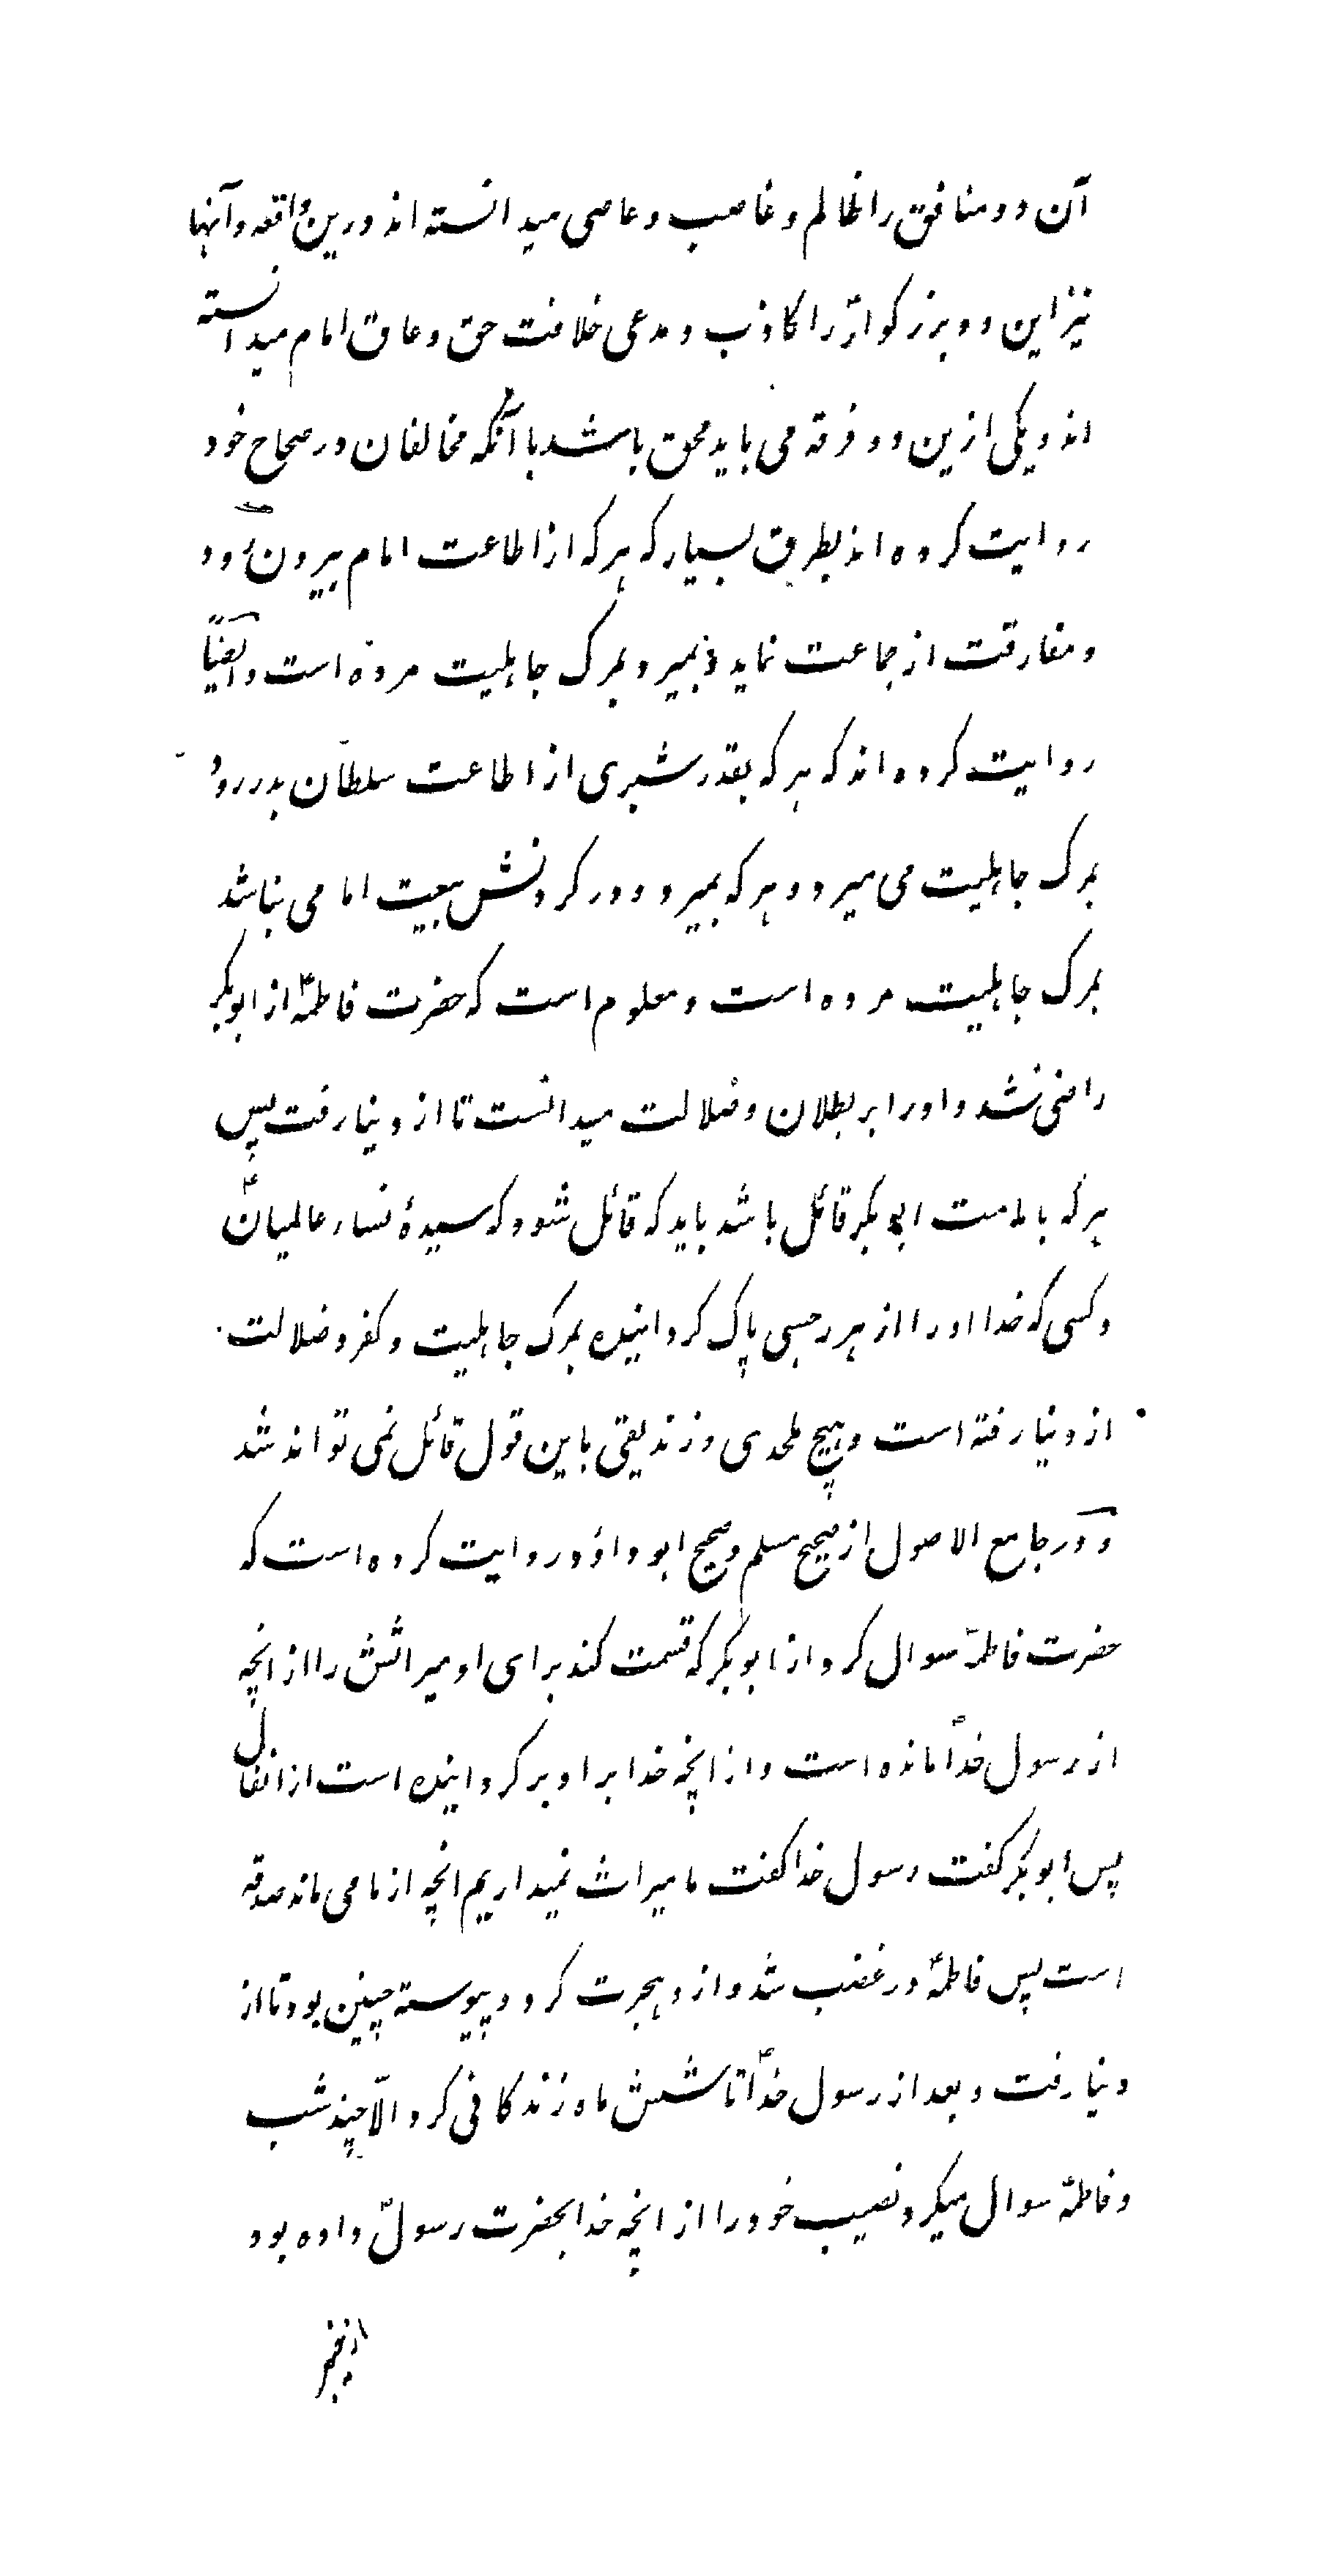 آن دو منافق را ظالم و غاصب و عاصی میدانسته اند درین واقعه و آنها
نیز این دو بزرگوارؑ را کاذب و مدعی خلافت حق و عاق امام میدانسته
اند و یکی ازین دو فرقه می باید محق باشد با آنکه مخالفان در صحاح خود
روایت کرده اند بطرق بسیار که هرکه از اطاعت امام بیرون رود
و مفارقت از جماعت نماید و بمیرد بمرک جاهلیت مرده است و ایضاً
روایت کرده اند که هرکه بقدر شبری از اطاعت سلطان بدر رود
بمرک جاهلیت می میرد و هرکه بمیرد و در کردنش بیعت امامی نباشد
بمرک جاهلیت مرده است و معلوم است که حضرت فاطمهؑ از ابوبکر
راضی نشد و او را بر بطلان و ضلالت میدانست تا از دنیا رفت پس
هرکه بامامت ابوبکر قائل باشد باید که قائل شود که سیدهٔ نساء عالمیانؑ
و کسی که خدا او را از هر رجسی پاک کردانیده بمرک جاهلیت و کفر و ضلالت
از دنیا رفته است و هیچ ملحدی و زندیقی باین قول قائل نمی تواند شد
و در جامع الاصول از صحیح مسلم و صحیح ابو داؤد روایت کرده است که
حضرت فاطمهؑ سوال کرد از ابوبکر که قسمت کند برای او میراثش را از انچه
از رسول خداؐ مانده است و از انچه خدا بر او بر کردانیده است از انفال
پس ابوبکر کفت رسول خدا کفت ما میراث نمیداریم انچه از ما می ماند صدقه
است پس فاطمهؑ در غضب شد و از و هجرت کرد و پیوسته چنین بود تا از
دنیا رفت و بعد از رسول خداؐ تا شش ماه زندکانی کرد الّا چند شب
و فاطمهؑ سوال میکرد نصیب خود را از انچه خدا بحضرت رسولؐ داده بود
از خیبر